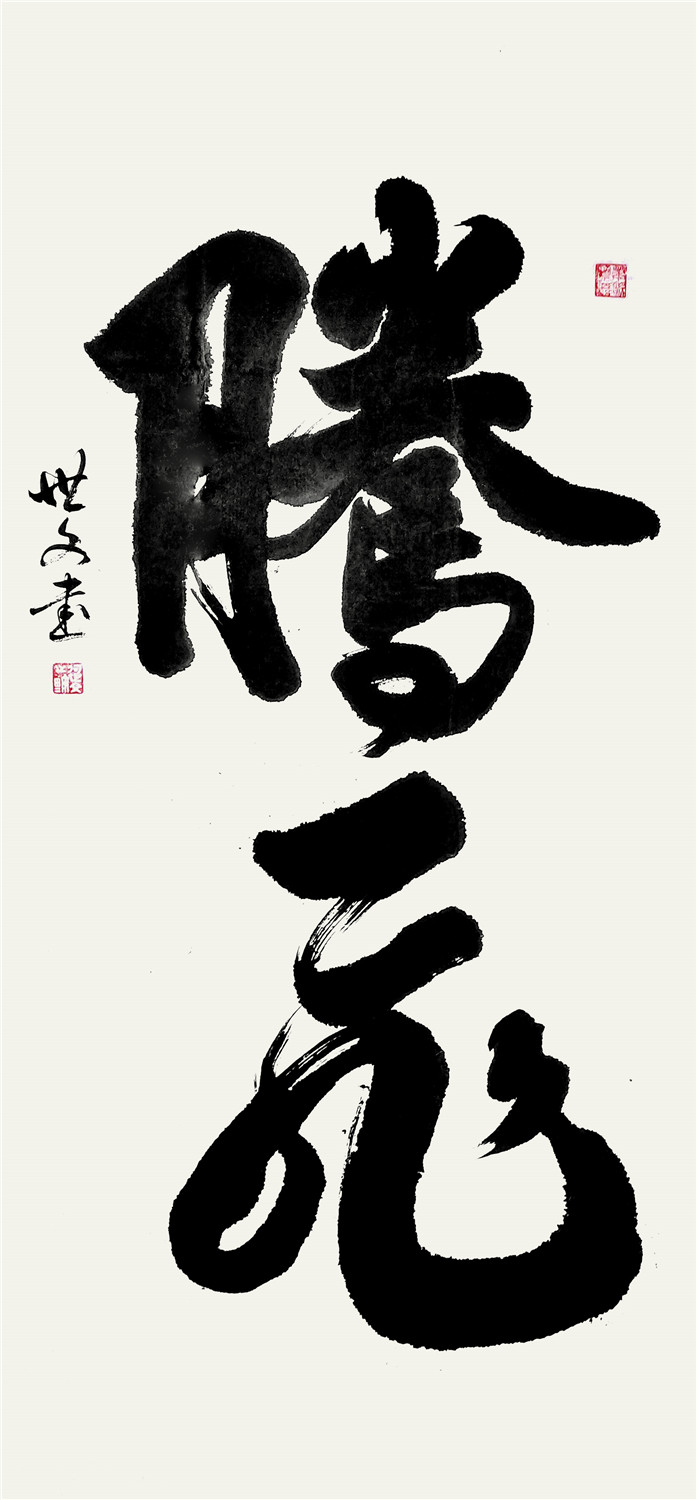 騰飛
世文書